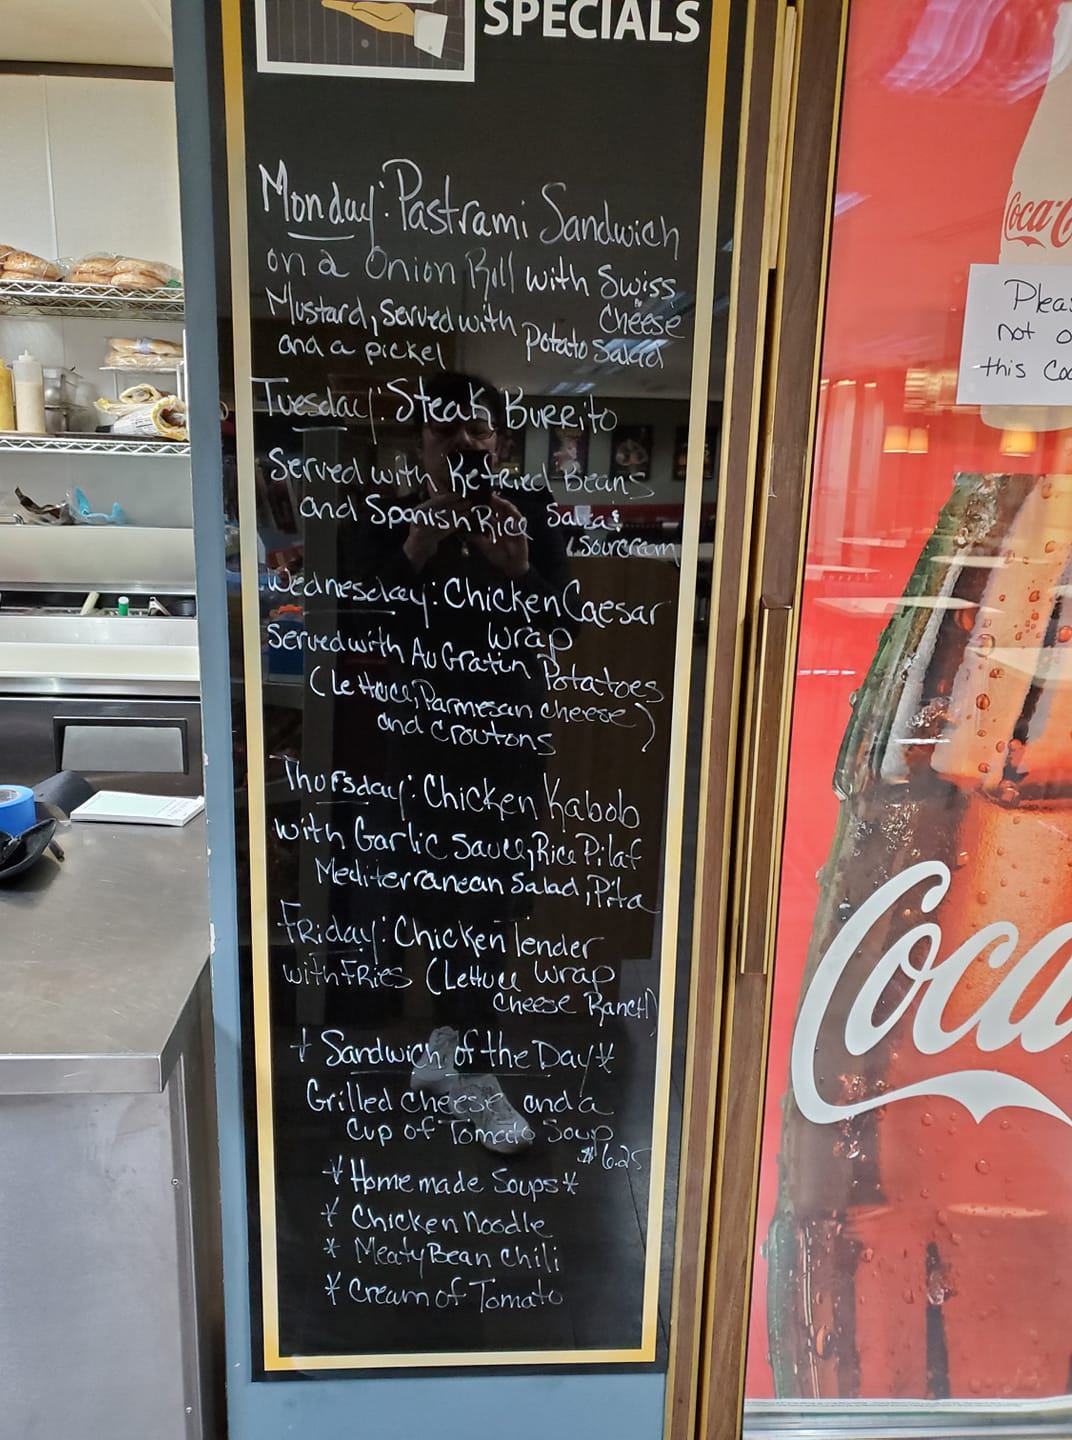 SPECIALS
Monday: Pastrami Sandwich
on a Onion Roll with Swiss
Cheese
Mustard, Served with Potato Salad
and a pickel
Tuesday: Steak Burrito
Served with Refried Beans
and Spanish Rice Salsa &
Sourcream
Wednesday: Chicken Caesar
Wrap
Served with Au Gratin Potatoes
(Lettuce, Parmesan cheese)
and croutons
Thursday: Chicken Kabob
with Garlic Sauce, Rice Pilaf
Mediterranean Salad, Pita
Friday: Chicken Tender
with Fries (Lettuce Wrap
Cheese Ranch)
* Sandwich of the Day *
Grilled Cheese and a
Cup of Tomato Soup
$6.25
* Homemade Soups *
* Chicken Noodle
* Meaty Bean Chili
* Cream of Tomato
Coca-C
Plea
not o
this Coo
Coca